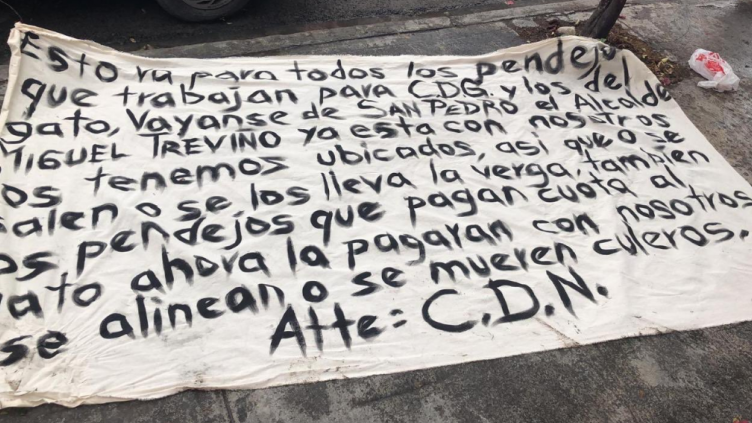 Esto va para todos los pendejo
que trabajan para CDG. y los del
gato, Vayanse de SAN PEDRO el Alcalde
MIGUEL TREVIÑO ya esta con nosotros
os tenemos ubicados, asi que o se
salen o se los lleva la verga, tambien
os pendejos que pagan cuota al
ato ahora la pagaran con nosotros
se alinean o se mueren culeros.
Atte: C.D.N.